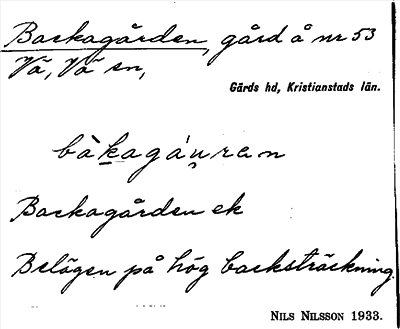 Backagården, gård å nr 53
Vä, Vä sn,
Gärds hd, Kristianstads län.
bàkagáu̯ran
Backagården ek
Belägen på hög backsträckning.
NILS NILSSON 1933.